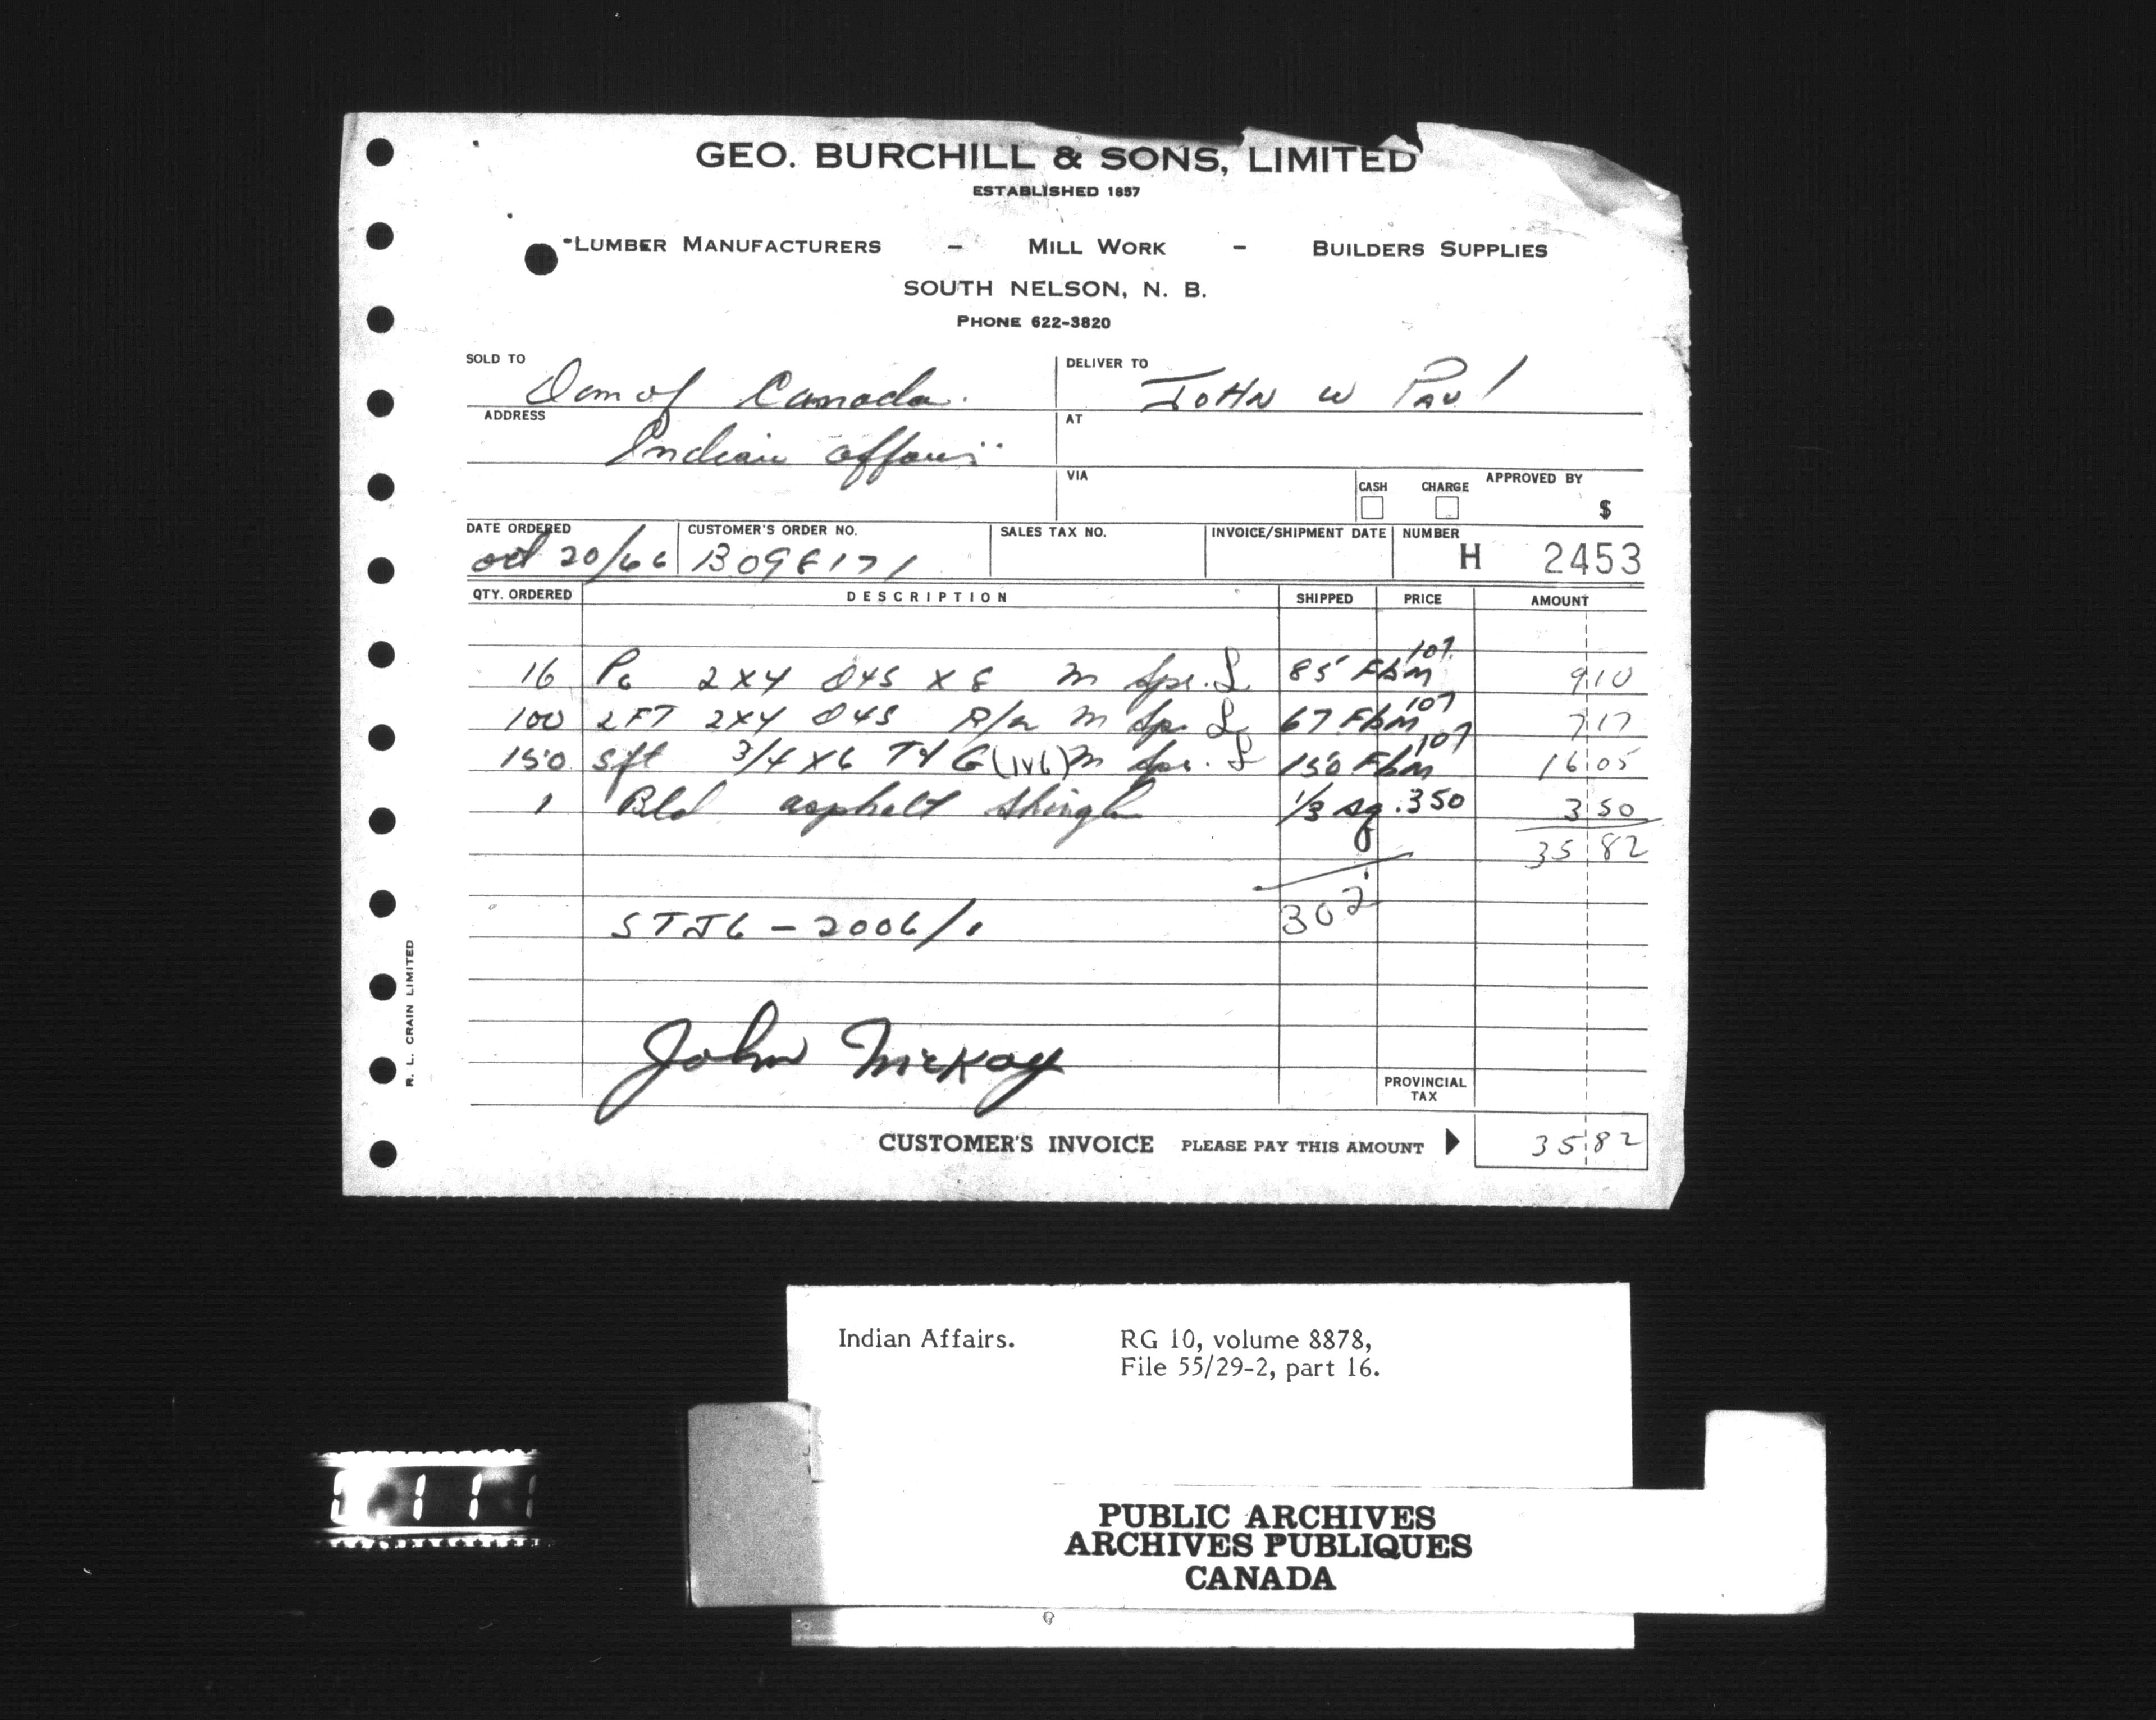 GEO. BURCHILL & SONS, LIMITED
ESTABLISHED 1857
LUMBER MANUFACTURERS - MILL WORK - BUILDERS SUPPLIES
SOUTH NELSON, N. B.
PHONE 622-3820
SOLD TO Dom of Canada.
DELIVER TO JOHN W PAUL
ADDRESS Indian affairs
AT
VIA
CASH CHARGE APPROVED BY
$
DATE ORDERED CUSTOMER'S ORDER NO. SALES TAX NO. INVOICE/SHIPMENT DATE NUMBER
Oct 20/66 B098171 H 2453
QTY. ORDERED DESCRIPTION SHIPPED PRICE AMOUNT
16 Pc 2x4 D4S x 8 m Spr. L 85 Fbm 107. 9 10
100 LFT 2x4 D4S R/L m Spr. L 67 Fbm 107 7 17
150 sft 3/4 x 6 T & G (1V6) m Spr. L 150 Fbm 107 16 05
1 Bld asphalt shingle 1/3 sq. 350 3 50
35 82
302
STJ6 - 2006/1
John McKay
PROVINCIAL TAX
CUSTOMER'S INVOICE PLEASE PAY THIS AMOUNT 35 82
R. L. CRAIN LIMITED
Indian Affairs. RG 10, volume 8878,
File 55/29-2, part 16.
PUBLIC ARCHIVES
ARCHIVES PUBLIQUES
CANADA